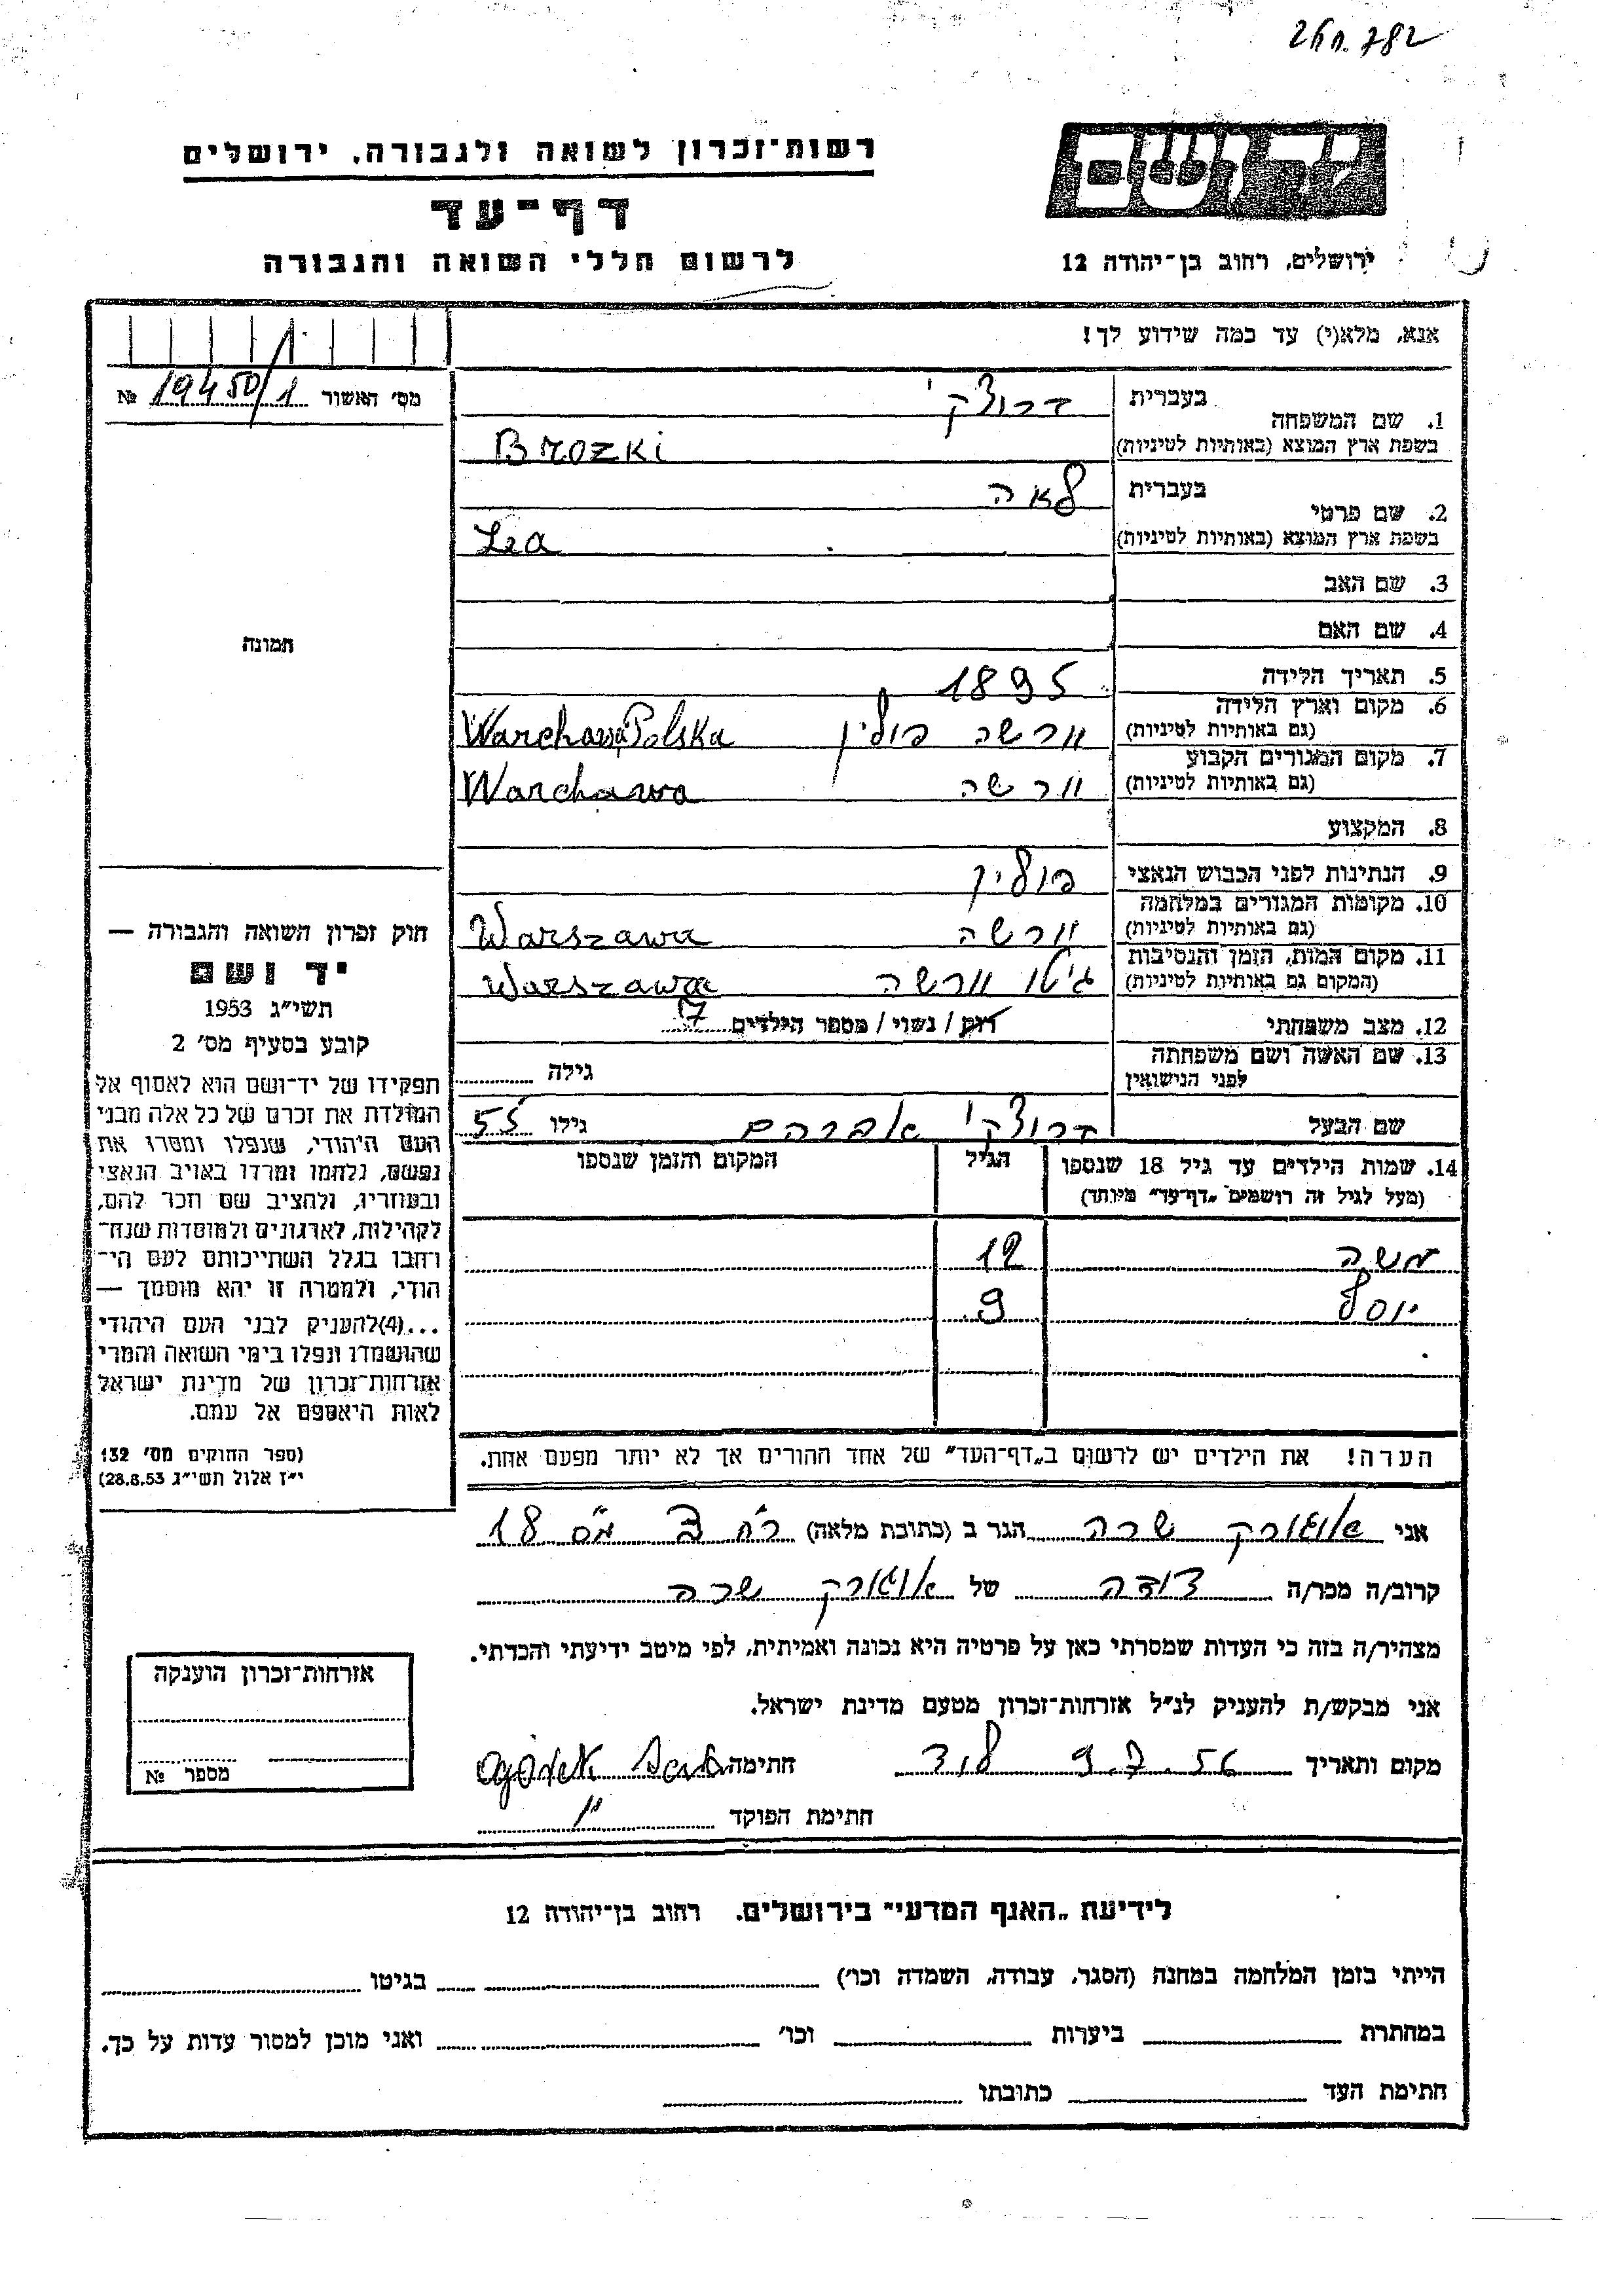 26/11.782
רשות־זכרון לשואה ולגבורה, ירושלים
יד ושם
דף־עד
לרשום חללי השואה והגבורה
ירושלים, רחוב בן־יהודה 12
אנא, מלא(י) עד כמה שידוע לך!
מס׳ האשור 19450/1 №
1. שם המשפחה
בעברית ברוצקי
בשפת ארץ המוצא (באותיות לטיניות) Brozki
2. שם פרטי
בעברית לאה
בשפת ארץ המוצא (באותיות לטיניות) Lea
3. שם האב
4. שם האם
תמונה
5. תאריך הלידה 1895
6. מקום וארץ הלידה
(גם באותיות לטיניות) וורשה פולין Warchawa Polska
7. מקום המגורים הקבוע
(גם באותיות לטיניות) וורשה Warchawa
8. המקצוע
9. הנתינות לפני הכבוש הנאצי פולין
10. מקומות המגורים במלחמה
(גם באותיות לטיניות) וורשה Warszawa
11. מקום המות, הזמן והנסיבות
(המקום גם באותיות לטיניות) גיטו וורשה Warszawa
12. מצב משפחתי רוק / נשוי / מספר הילדים 7
13. שם האשה ושם משפחתה
לפני הנישואין גילה
שם הבעל ברוצקי אברהם גילו 55
14. שמות הילדים עד גיל 18 שנספו הגיל המקום והזמן שנספו
(מעל לגיל זה רושמים „דף־עד״ מיוחד)
משה 12
יוסף 9
הערה! את הילדים יש לרשום ב„דף־העד״ של אחד ההורים אך לא יותר מפעם אחת.
חוק זכרון השואה והגבורה —
יד ושם
תשי״ג 1953
קובע בסעיף מס׳ 2
תפקידו של יד־ושם הוא לאסוף אל
המולדת את זכרם של כל אלה מבני
העם היהודי, שנפלו ומסרו את
נפשם, נלחמו ומרדו באויב הנאצי
ובעוזריו, ולהציב שם וזכר להם,
לקהילות, לארגונים ולמוסדות שנח־
רבו בגלל השתייכותם לעם הי־
הודי, ולמטרה זו יהא מוסמך —
...(4)להעניק לבני העם היהודי
שהושמדו ונפלו בימי השואה והמרי
אזרחות־זכרון של מדינת ישראל
לאות היאספם אל עמם.
(ספר החוקים מס׳ 132
י״ז אלול תשי״ג 28.8.53)
אני אוגורק שרה הגר ב (כתובת מלאה) רח 3 מס 18
קרוב/ה מכר/ה דודה של אוגורק שרה
מצהיר/ה בזה כי העדות שמסרתי כאן על פרטיה היא נכונה ואמיתית, לפי מיטב ידיעתי והכרתי.
אני מבקש/ת להעניק לנ״ל אזרחות־זכרון מטעם מדינת ישראל.
מקום ותאריך 9.7.56 לוד חתימה Ogórek Sara
חתימת הפוקד
אזרחות־זכרון הוענקה
מספר №
לידיעת „האגף המדעי״ בירושלים. רחוב בן־יהודה 12
הייתי בזמן המלחמה במחנה (הסגר, עבודה, השמדה וכו׳) בגיטו
במחתרת ביערות וכו׳ ואני מוכן למסור עדות על כך.
חתימת העד כתובתו